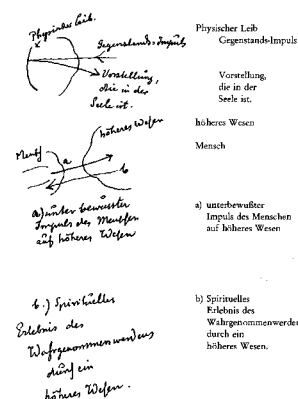 Physischer Leib.
Gegenstands-Impuls
Vorstellung,
die in der
Seele ist.
höheres Wesen
Mensch
a
b
a) unter bewusster
Impuls des Menschen
auf höheres Wesen
b.) Spirituelles
Erlebnis des
Wahrgenommenwerdens
durch ein
höheres Wesen.
Physischer Leib
Gegenstands-Impuls
Vorstellung,
die in der
Seele ist.
höheres Wesen
Mensch
a) unterbewußter
Impuls des Menschen
auf höheres Wesen
b) Spirituelles
Erlebnis des
Wahrgenommenwerdens
durch ein
höheres Wesen.